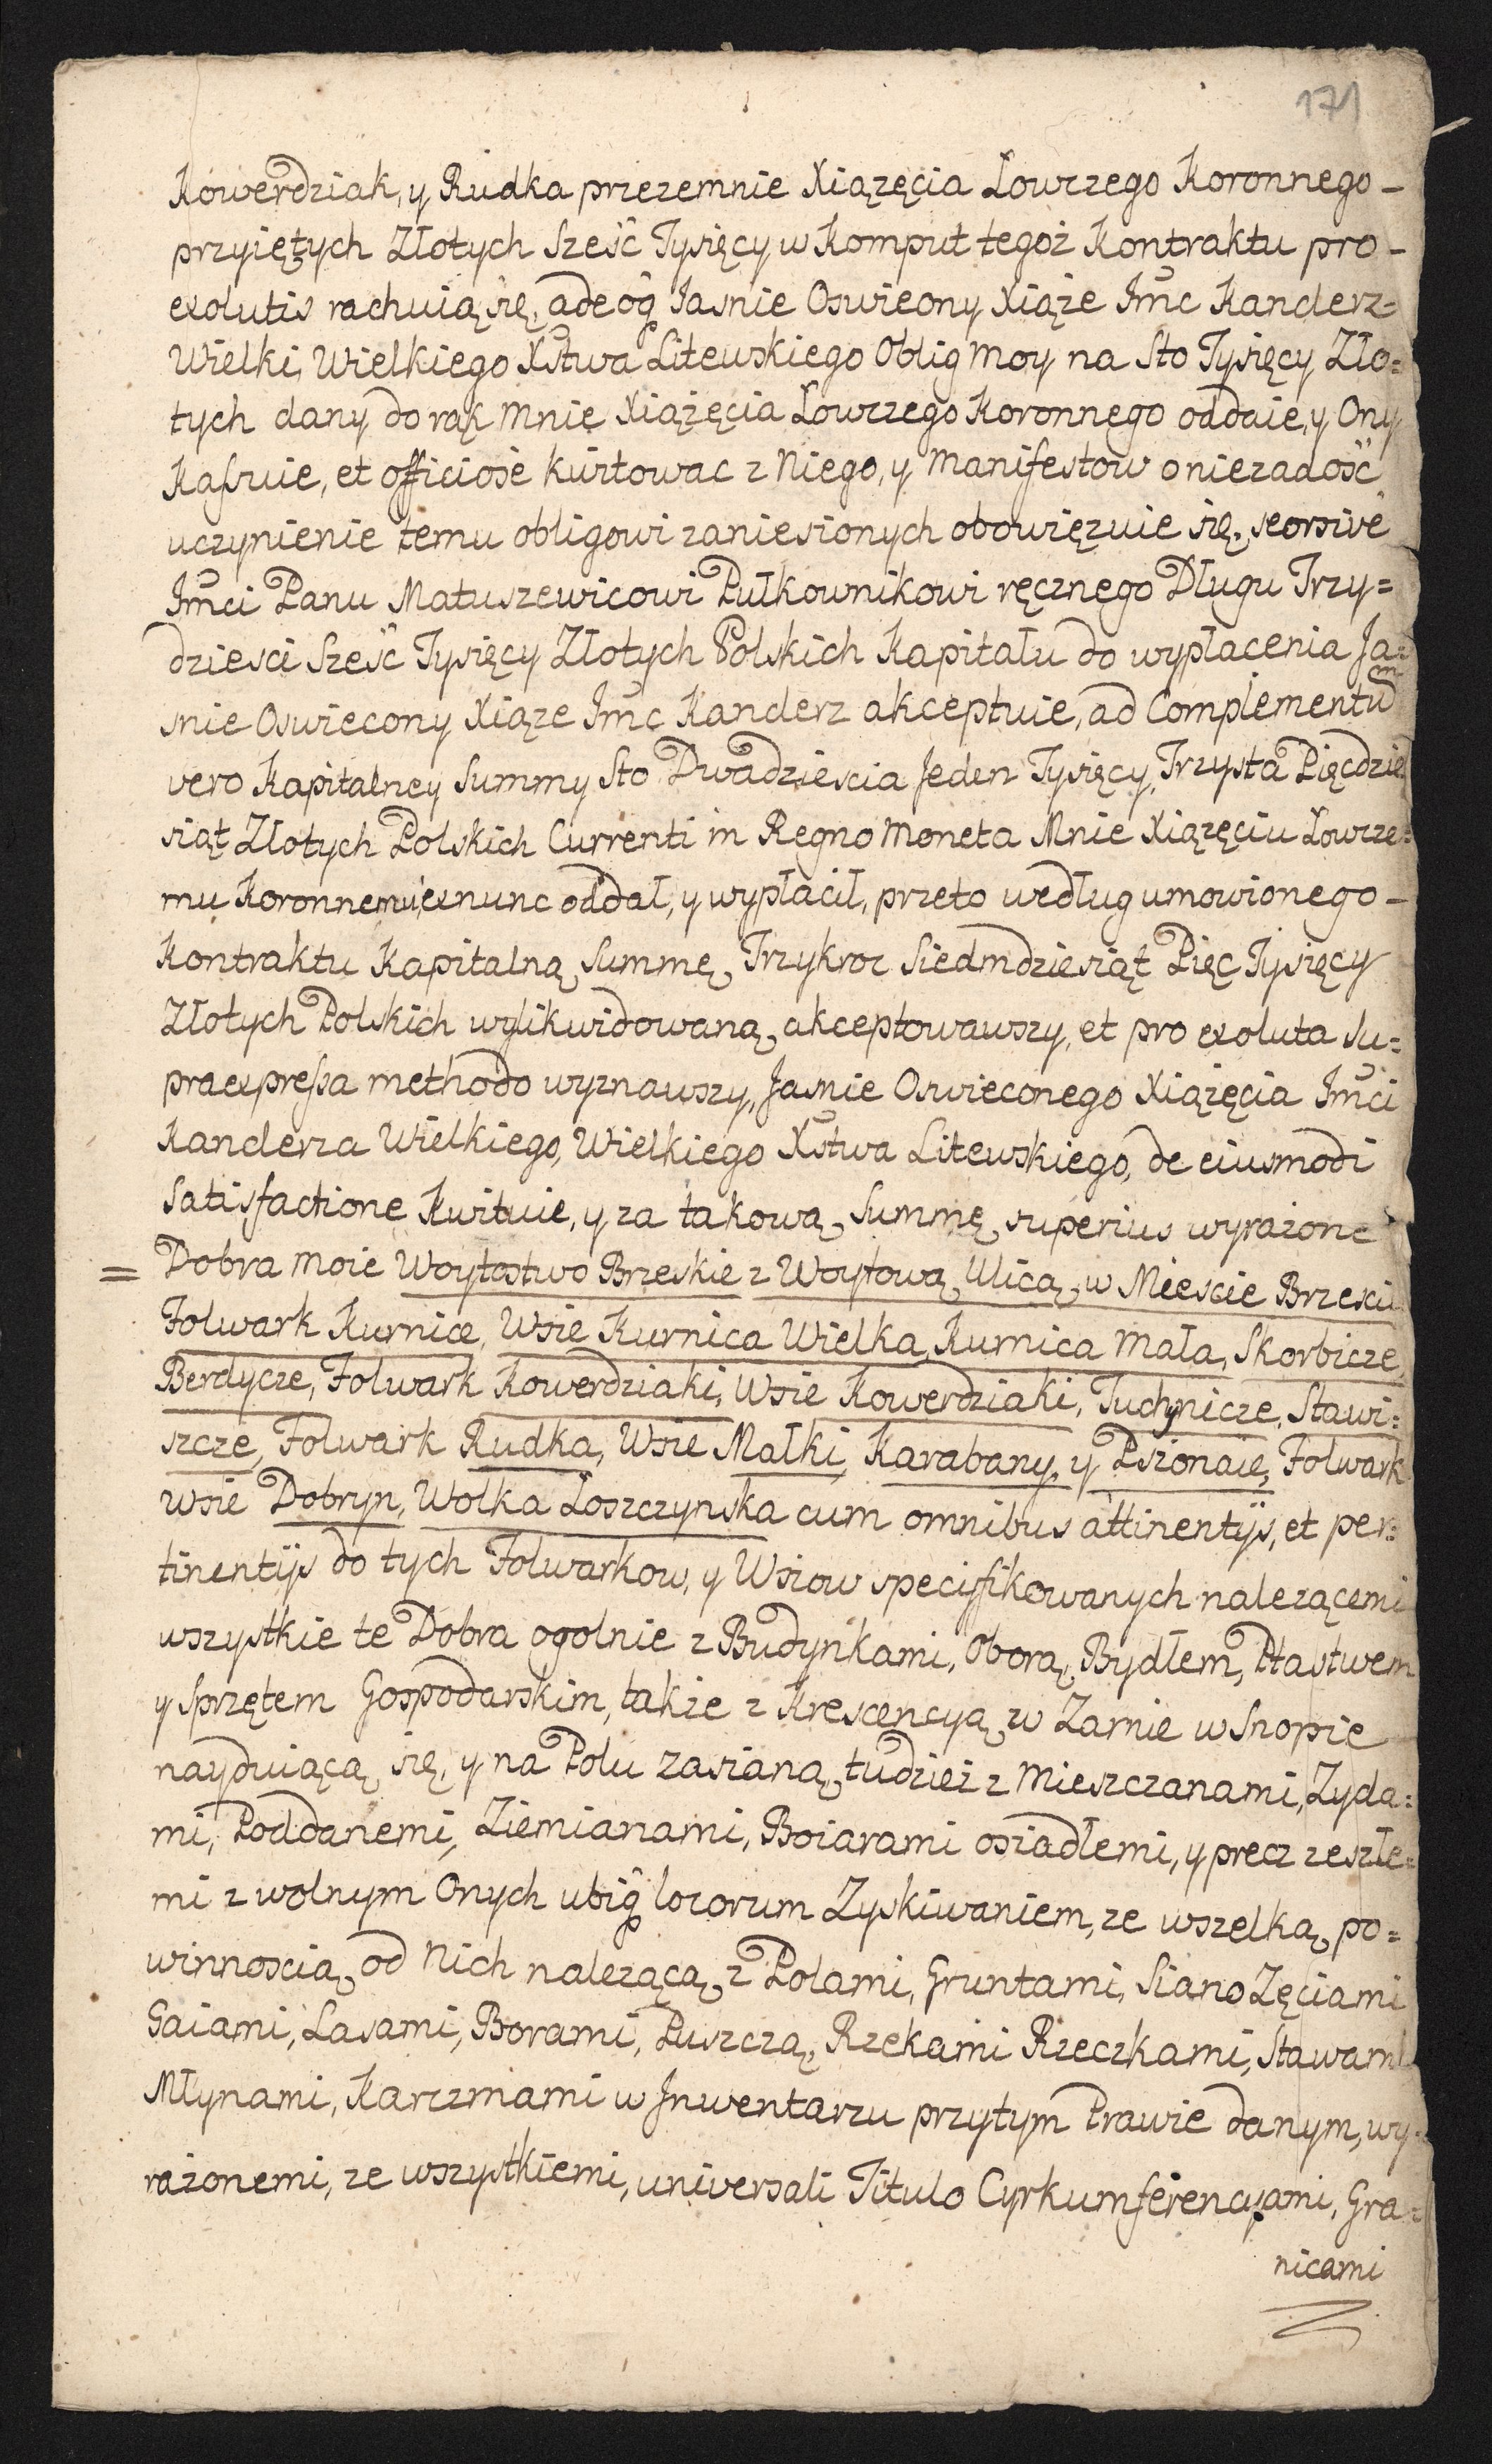 171
Kowerdziak, y Rudka przezemnie Xiązęcia Łowczego Koronnego –
przyiętych Złotych Sześć Tysięcy w Komput tegoż Kontraktu pro –
exolutis rachuią się, adeoq̃ Jasnie Oswieony Xiąże Jm̃c Kanclerz =
Wielki, Wielkiego Xstwa Litewskiego Oblig moy na Sto Tysięcy Zło =
tych dany do rąk mnie Xiążęcia Łowczego Koronnego oddaie, y Ony
Kaſsuie, et officiose kwitowac z Niego, y manifestow o niezadość
uczynienie temu obligowi zaniesionych obowięzuie się, seorsive
Jm̃ci Panu Matuszewicowi Pułkownikowi ręcznego Długu Trzy =
dziesci Sześć Tysięcy Złotych Polskich Kapitału do wypłacenia Ja =
snie Oswiecony Xiąze Jm̃c Kanclerz akceptuie, ad Complementum
vero Kapitalney Summy Sto Dwadziescia Jeden Tysięcy, Trzysta Pięcdzie
siąt Złotych Polskich Currenti in Regno Moneta Mnie Xiązęciu Łowcze =
mu Koronnemu, exnunc oddał, y wypłacił, przeto według umowionego –
Kontraktu Kapitalną Summę, Trzykroc Siedmdziesiąt Pięc Tysięcy
Złotych Polskich wylikwidowaną akceptowawszy, et pro exoluta su =
praexpreſsa methodo wyznawszy, Jasnie Oswieconego Xiążęcia Jm̃ci
Kanclerza Wielkiego, Wielkiego Xstwa Litewskiego, de eiusmodi
Satisfactione Kwituie, y za takową Summę superius wyrażone
= Dobra moie Woytostwo Brzeskie z Woytową Ulicą w Miescie Brzesciu
Folwark Kurnice, Wsie Kurnica Wielka, Kurnica Mała, Skorbicze,
Berdycze, Folwark Kowerdziaki, Wsie Kowerdziaki, Tuchynicze, Stawi =
szcze, Folwark Rudka, Wsie Małki, Karabany, y Pszonaie, Folwark
wsie Dobryn, Wolka Łoszczynska cum omnibus attinentijs, et per =
tinentijs do tych Folwarkow, y Wsiow specifikowanych nalezącemi
wszystkie te Dobra ogolnie z Budynkami, Oborą, Bydłem, Ptastwem
y Sprzętem Gospodarskim, także z Krescencyą w Zarnie w Snopie
nayduiącą się, y na Polu zasianą, tudzież z Mieszczanami, Zyda =
mi, Poddanemi, Ziemianami, Boiarami osiadłemi, y precz zeszłe =
mi z wolnym Onych ubiq̃ locorum Zyskiwaniem, ze wszelką po =
winnoscią od Nich nalezącą z Polami, Gruntami, SianoZęciami
Gaiami, Lasami, Borami, Puszczą, Rzekami Rzeczkami, Stawami
Młynami, Karczmami w Jnwentarzu przytym Prawie danym, wy =
rażonemi, ze wszystkiemi, universali Titulo Cyrkumferencyami, Gra =
nicami